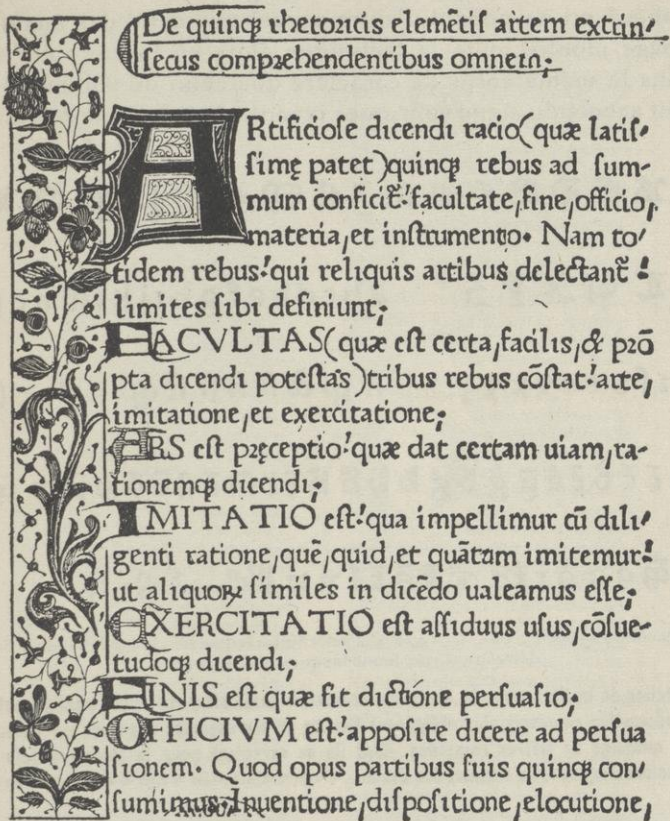 De quinqꝫ rhetoricis elemētiſ artem extrin⸗
ſecus compꝛehendentibus omnem;
ARtificioſe dicendi racio(quæ latiſ⸗
ſimę patet)quinqꝫ rebus ad ſum⸗
mum conficit̄:facultate,fine,officio,
materia,et inſtrumento. Nam to⸗
tidem rebus:qui reliquis artibus delectant̄:
limites ſibi definiunt;
FACVLTAS(quæ eſt certa,facilis,& pꝛō
pta dicendi poteſtas)tribus rebus cōſtat:arte,
imitatione,et exercitatione;
ARS eſt pręceptio:quæ dat certam uiam,ra-
tionemqꝫ dicendi;
IMITATIO eſt:qua impellimur cū dili⸗
genti ratione,quē,quid,et quātum imitemur:
ut aliquoꝝ ſimiles in dicēdo ualeamus eſſe;
EXERCITATIO eſt aſſiduus uſus,cōſue-
tudoqꝫ dicendi;
FINIS eſt quæ fit dictióne perſuaſio;
OFFICIVM eſt:appoſite dicere ad perſua
ſionem. Quod opus partibus ſuis quinqꝫ con⸗
ſumimus:Inuentione,diſpoſitione,elocutione,